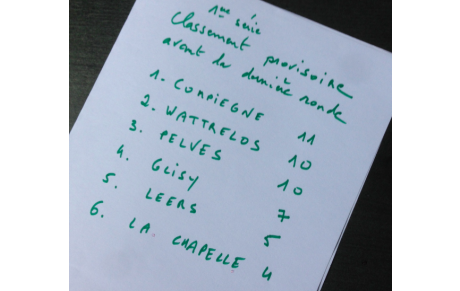 1ère série
Classement provisoire
avant la dernière ronde
1. COMPIEGNE 11
2. WATTRELOS 10
3. PELVES 10
4. GLISY 7
5. LEERS 5
6. LA CHAPELLE 4